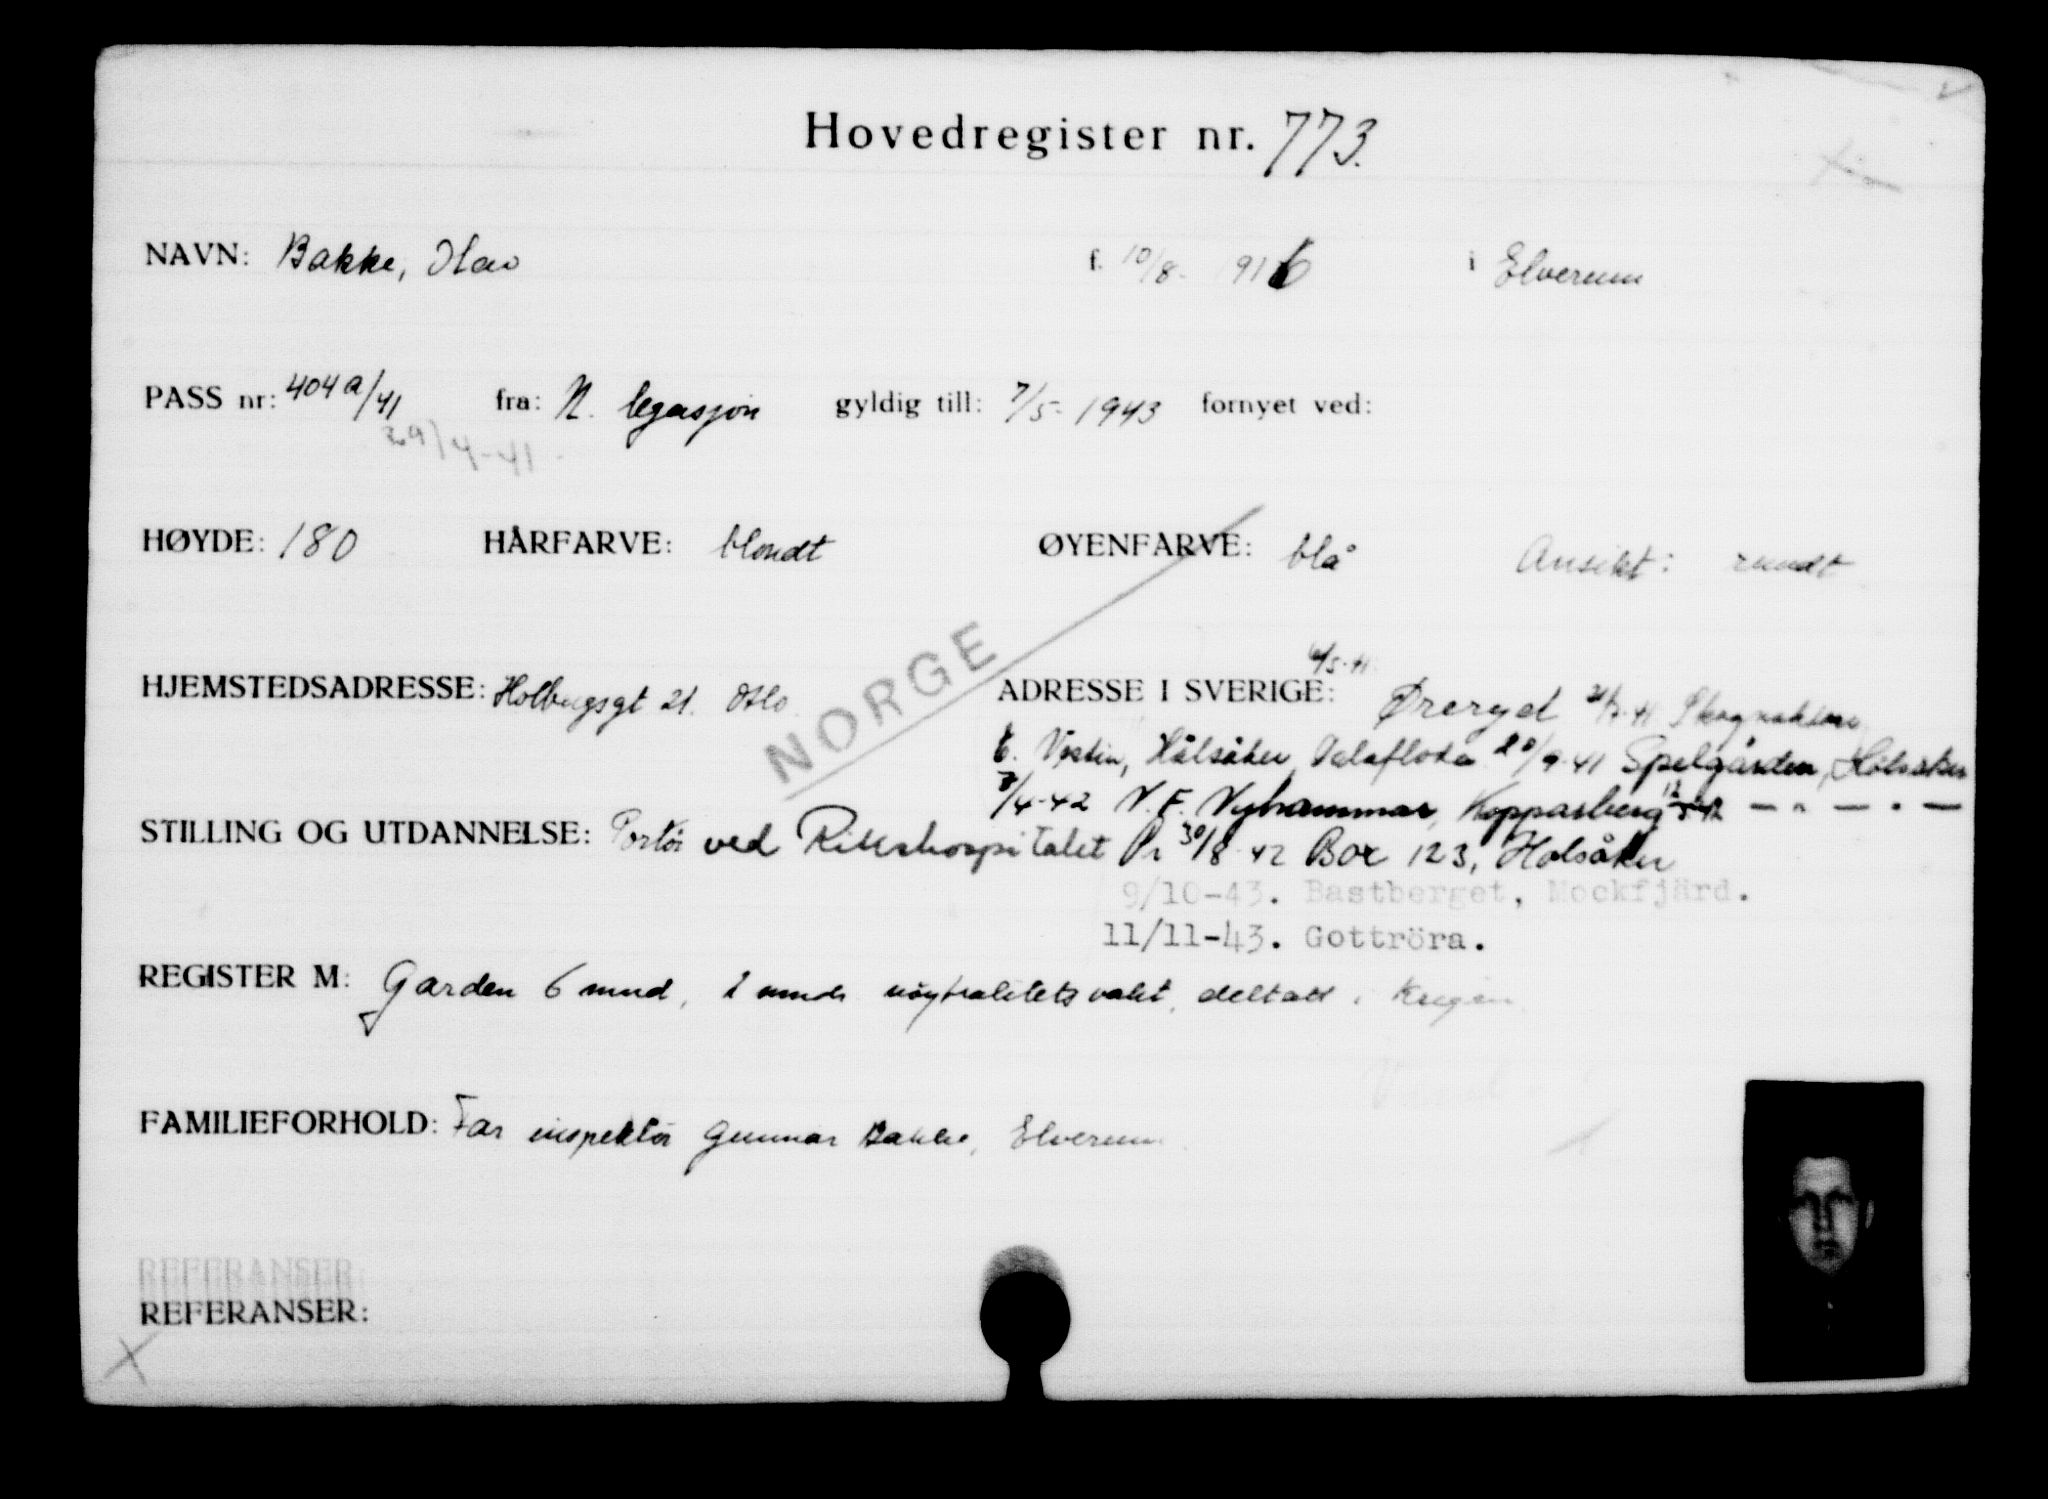 Hovedregister nr. 773.
NAVN: Bakke, Olav f. 10/8- 1916 i Elverum
PASS nr: 404a/41 fra: N. legasjon gyldig till: 7/5- 1943 fornyet ved:
29/4-41
HØYDE: 180 HÅRFARVE: blondt ØYENFARVE: blå Ansikt: rundt
NORGE
HJEMSTEDSADRESSE: Holbergsgt 21. Oslo ADRESSE I SVERIGE: 6/5-41 Øreryd
Hålsåker, Dalafloda 20/9-41 Spelgården, Holsåker
7/4-42 V.F. Nyhammar, Kopparberg
STILLING OG UTDANNELSE: Portør ved Rikshospitalet 30/8 42 Box 123, Holsåker
9/10-43. Bastberget, Mockfjärd.
11/11-43. Gottröra.
REGISTER M: Garden 6 mnd, nøytralitetsvakt, deltatt i krigen
FAMILIEFORHOLD: Far inspektør Gunnar Bakke, Elverum
REFERANSER
REFERANSER: